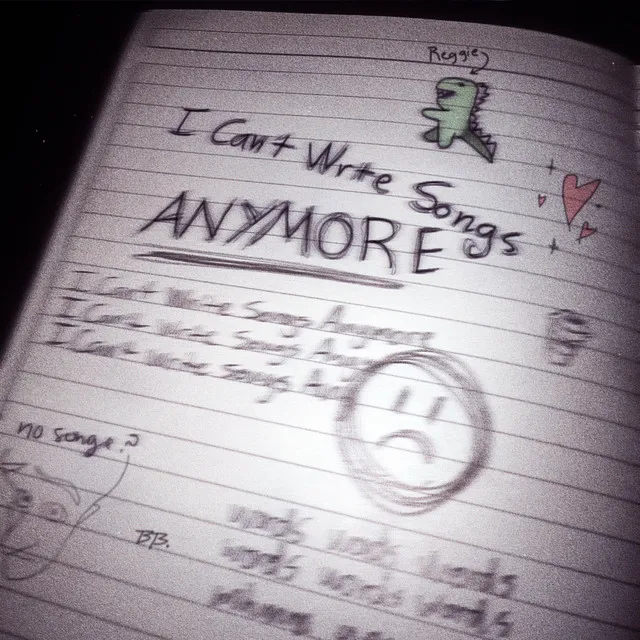 Reggie
I Can't Write Songs
ANYMORE
I Can't Write Songs Anymore
I Can't Write Songs
I Can't Write Songs
no songs?
B.B.
words words words
words words words